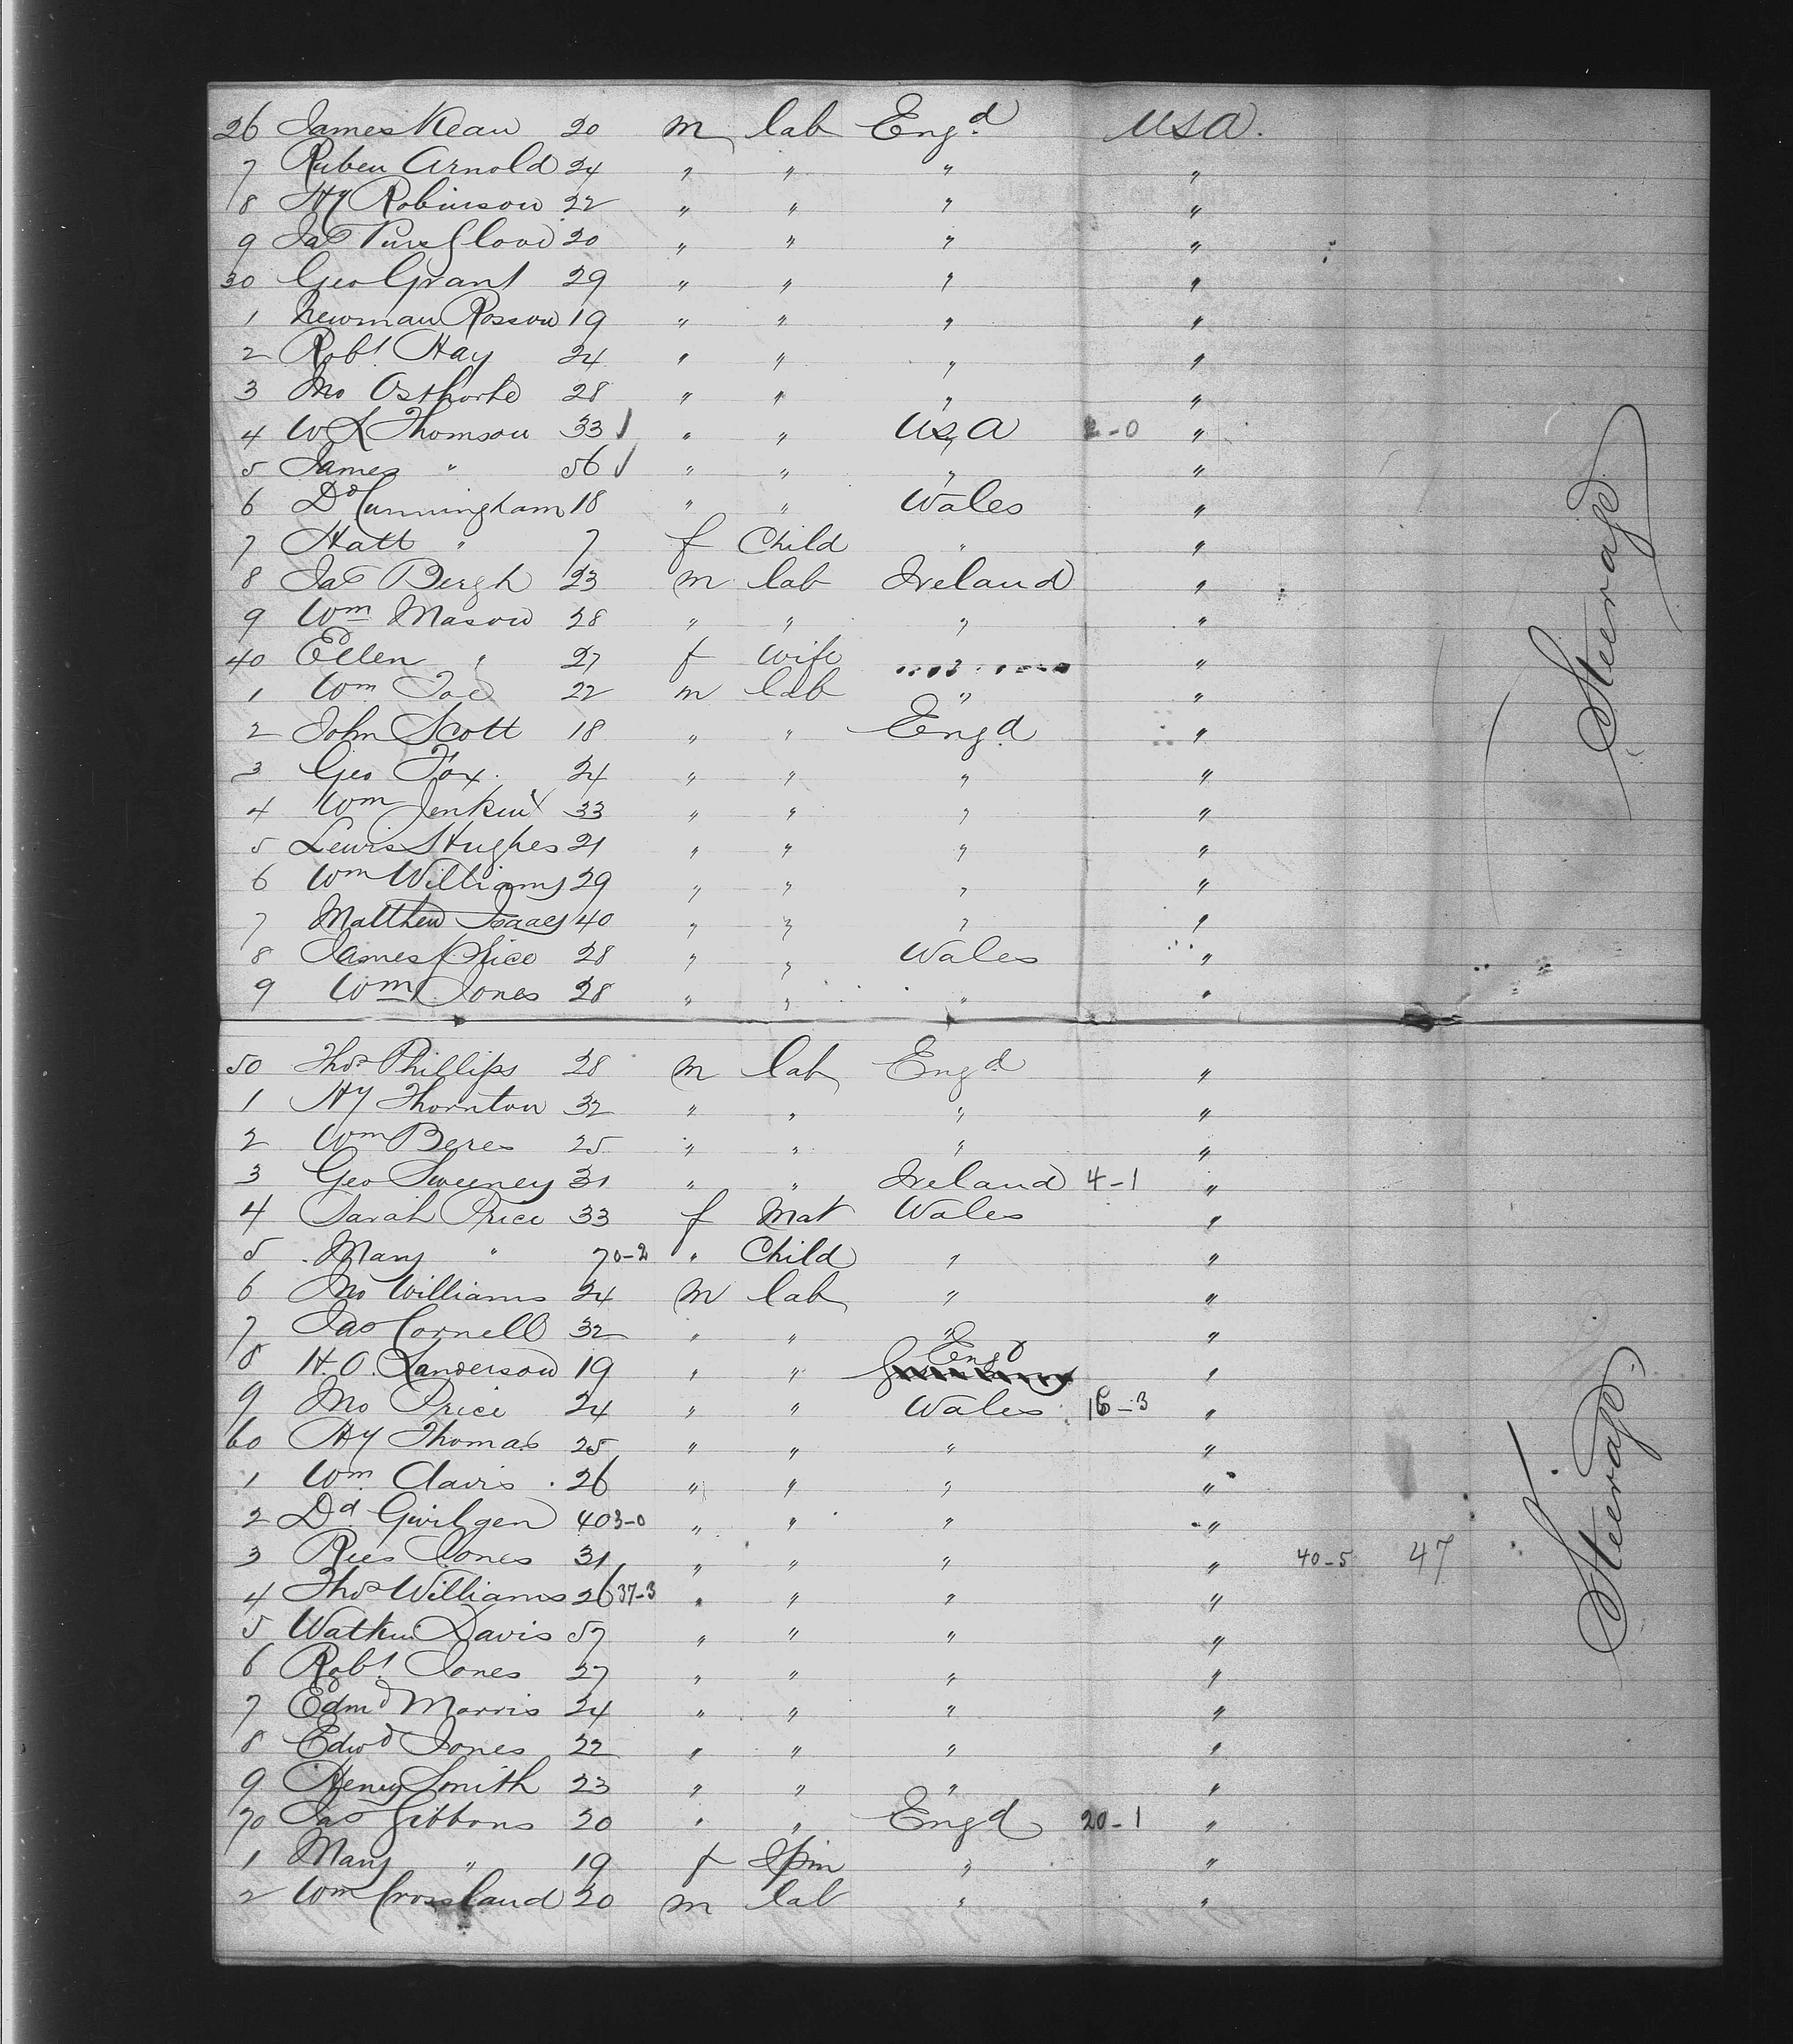 26 James Kean 20 m lab Engd USA.
7 Ruben Arnold 24 " " " "
8 Hy Robinson 22 " " " "
9 Jas Purslove 20 " " " "
30 Geo Grant 29 " " " "
1 Newman Rosson 19 " " " "
2 Robt Hay 24 " " " "
3 Jno 28 " " " "
4 W L Thomson 33 " " USA 2-0 "
5 James " 56 " " " "
6 Dd Cunningham 18 " " Wales "
7 Hatt " 7 f Child " "
8 Jas Bergh 23 m lab Ireland "
9 Wm Mason 28 " " " "
40 Ellen " 27 f Wife "
1 Wm 22 m lab " "
2 John Scott 18 " " Engd "
3 Geo Fox. 24 " " " "
4 Wm Jenkin 33 " " " "
5 Lewis Hughes 21 " " " "
6 Wm Williams 29 " " " "
7 Matthew Isaacs 40 " " " "
8 James Price 28 " " Wales "
9 Wm Jones 28 " " " "
Steerage
50 Thos Phillips 28 m lab Engd "
1 Hy Thornton 32 " " " "
2 Wm Beres 25 " " " "
3 Geo Sweeney 31 " " Ireland 4-1 "
4 Sarah Price 33 f Mat Wales "
5 Mary " 7 0-2 " Child " "
6 Jno Williams 24 m lab " "
7 Jas Cornell 32 " " " "
8 H. O. Sanderson 19 " " Engd "
9 Jno Price 24 " " Wales 16-3 "
60 Hy Thomas 25 " " " "
1 Wm Davis 26 " " " "
2 Dd Gwilgen 40 3-0 " " " "
3 Rees Jones 31 " " " " 40-5 47
4 Thos Williams 26 37-3 " " " "
5 Watkin Davis 57 " " " "
6 Robt Jones 27 " " " "
7 Edmd Morris 24 " " " "
8 Edwd Jones 22 " " " "
9 Henry Smith 23 " " " "
70 Jas Gibbons 20 " " Engd 20-1 "
1 Mary " 19 f Spin " "
2 Wm Crossland 20 m lab " "
Steerage